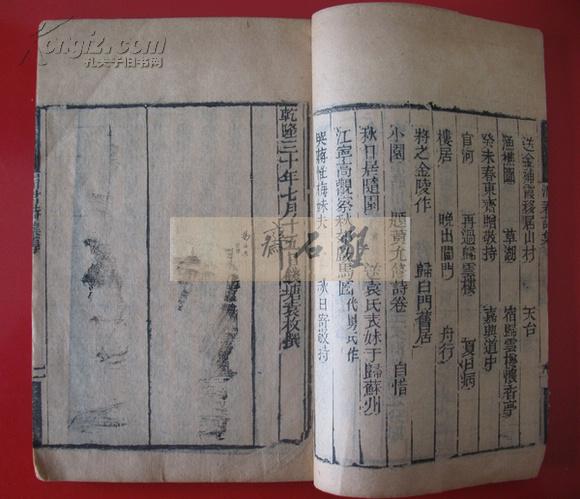 送金神霞移居山村　天台
漁樵圖　草湖　宿歸雲樓懷香亭
癸未春東齋贈敬持　嘉興道中
官河　再過歸雲樓　夏日病
樓居　晚出閶門　舟行
將之金陵作　歸白門舊居
小園　題黃允修詩卷　自惜
秋日居隨園　送袁氏表妹于歸蘇州
江寧高觀察秋
馬圖代舅氏作
哭蔣惟梅妹夫　秋日寄敬持
乾隆三十年七月十五日錢塘袁枚撰
孔夫子旧书网